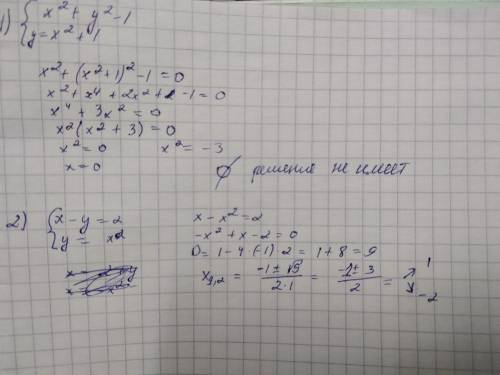 1) { x² + y² - 1
y = x² + 1
x² + (x² + 1)² - 1 = 0
x² + x⁴ + 2x² + 1 - 1 = 0
x⁴ + 3x² = 0
x² (x² + 3) = 0
x² = 0 x² = -3
x = 0 ∅ решение не имеет
2) { x - y = 2
y = x²
x - x² = 2
-x² + x - 2 = 0
D = 1 - 4 · (-1) · 2 = 1 + 8 = 9
x₁,₂ = (-1 ± √9)/(2·1) = (-1 ± 3)/2 = 1
-2